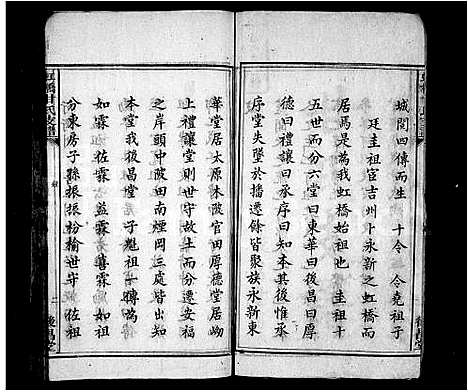 城閭四傳而生 十令 令堯祖子
廷圭祖宦吉州卜永新之虹橋而
居焉是為我虹橋始祖也 圭祖十
五世而分六堂曰東華曰後昌曰厚
德曰禮讓曰承序曰知本其後惟承
序堂失墜於播遷餘皆聚族永新東
華堂居太原林陂官田厚德堂居坳
上禮讓堂則世守故土而分遷安福
之岸頭中陂田南煙岡三處皆出知
本堂我後昌堂 子彪祖子時為
如霖 佐霖 益霖 善霖 如祖
分東房子縣振振粉榆世守 佐祖
虹橋
氏支譜
後昌堂